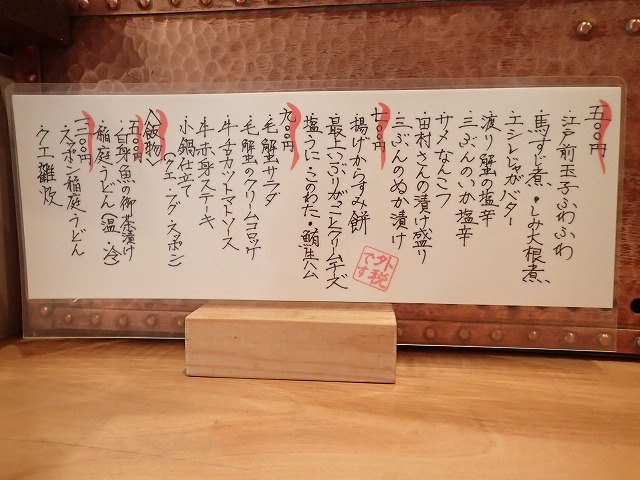 五〇〇円
・江戸前玉子ふわふわ
・馬すじ煮・しみ大根煮
・エシレじゃがバター
・渡り蟹の塩辛
・三ぶんのいか塩辛
・サメなんこつ
・田村さんの漬け盛り
・三ぶんのぬか漬け
七〇〇円
・揚げからすみ餅
・最上いぶりがっことクリームチーズ
・塩うに・このわた・鮪生ハム
九〇〇円
・毛蟹サラダ
・毛蟹のクリームコロッケ
・牛チカツトマトソース
・牛赤身ステーキ
・小鍋仕立て
(クエ・フグ・スッポン)
〈飯物〉
五〇〇円
・白身魚の御茶漬け
・稲庭うどん(温・冷)
円
・スッポン稲庭うどん
・クエ雑炊
外税です